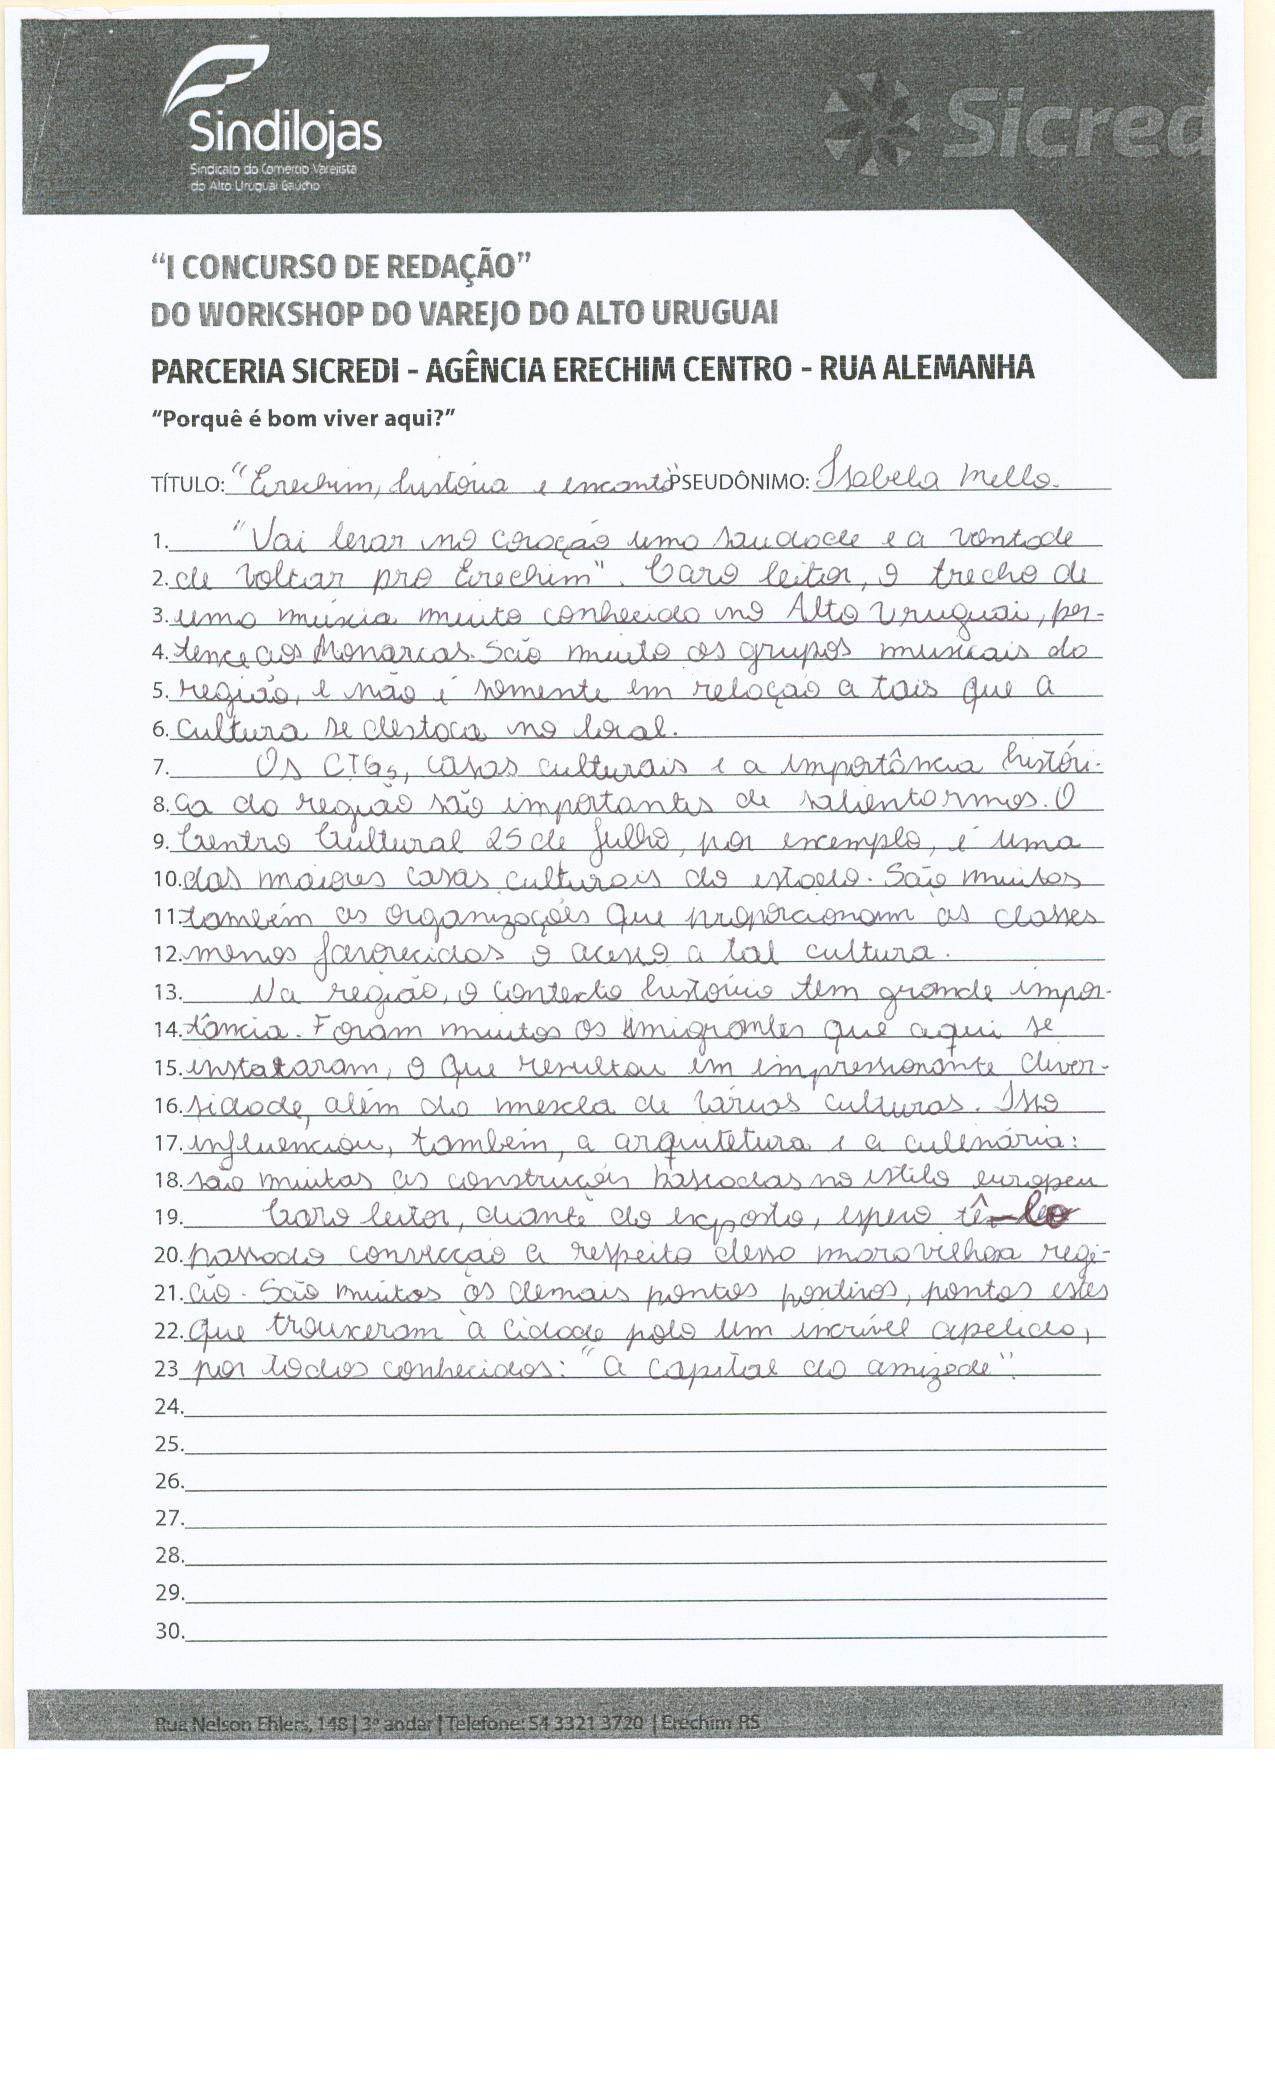 Sindilojas
Sindicato do Comércio Varejista
do Alto Uruguai Gaúcho
Sicred
“I CONCURSO DE REDAÇÃO”
DO WORKSHOP DO VAREJO DO ALTO URUGUAI
PARCERIA SICREDI - AGÊNCIA ERECHIM CENTRO - RUA ALEMANHA
“Porquê é bom viver aqui?”
TÍTULO: "Erechim, história e encanto" PSEUDÔNIMO: Isabela Mello.
1. "Vai levar no coração uma saudade e a vontade
2. de voltar pro Erechim". Caro leitor, o trecho de
3. uma música muito conhecida no Alto Uruguai, per-
4. tence aos Monarcas. São muito os grupos musicais da
5. região, e não é somente em relação a tais que a
6. cultura se destaca no local.
7. Os CTGs, casas culturais e a importância históri-
8. ca da região são importantes de salientarmos. O
9. Centro Cultural 25 de Julho, por exemplo, é uma
10. das maiores casas culturais do estado. São muitas
11. também as organizações que proporcionam às classes
12. menos favorecidas o acesso a tal cultura.
13. Na região, o contexto histórico tem grande impor-
14. tância. Foram muitos os imigrantes que aqui se
15. instalaram, o que resultou em impressionante diver-
16. sidade, além da mescla de várias culturas. Isso
17. influenciou, também, a arquitetura e a culinária:
18. são muitas as construções baseadas no estilo europeu
19. Caro leitor, diante do exposto, espero tê-lo
20. passado convicção a respeito dessa maravilhosa regi-
21. ão. São muitos os demais pontos positivos, pontos estes
22. que trouxeram à cidade polo um incrível apelido,
23 por todos conhecidos: "a capital da amizade".
24.
25.
26.
27.
28.
29.
30.
Rua Nelson Ehlers, 148 | 3º andar | Telefone: 54 3321 3720 | Erechim RS